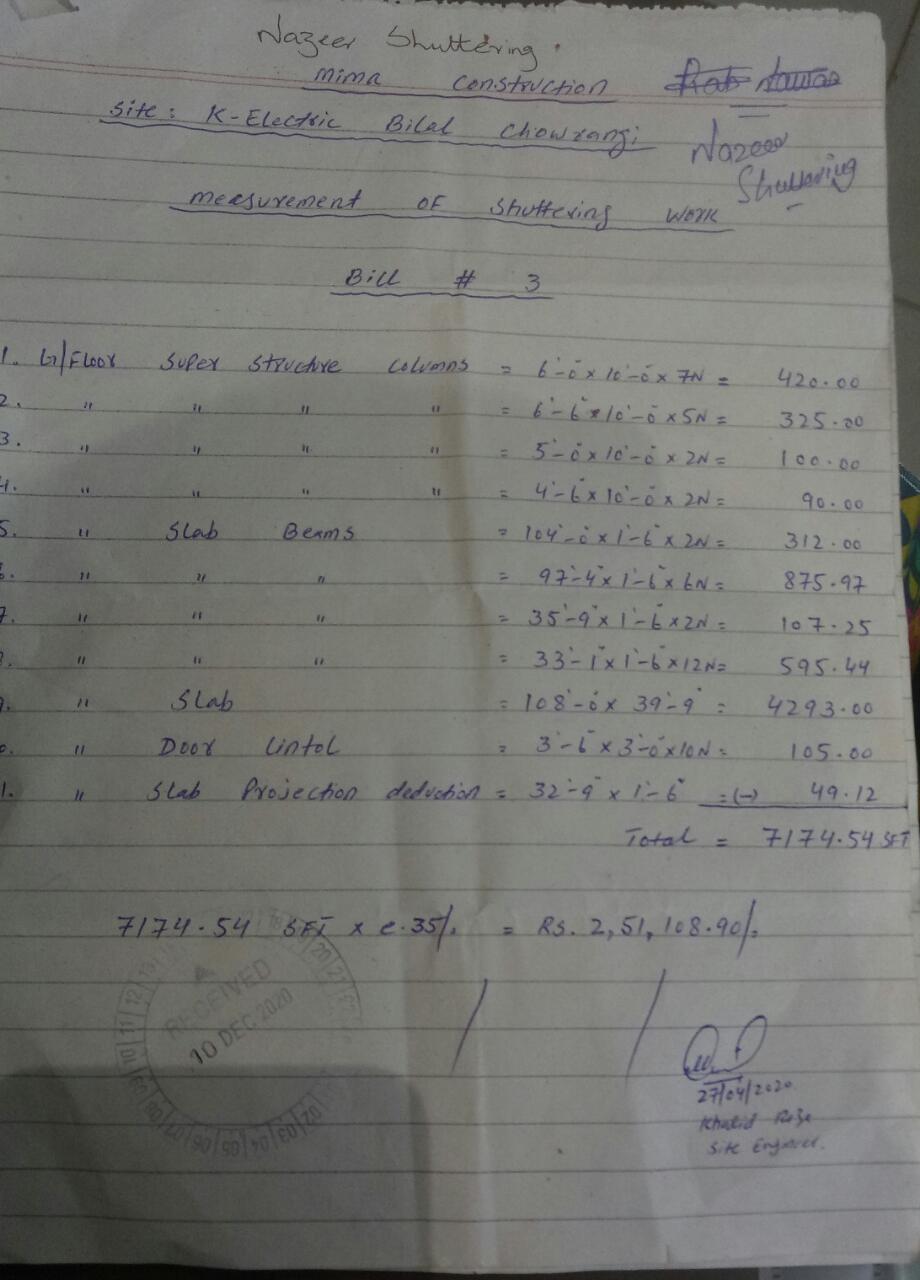 Nazeer Shuttering
mima construction
site: K-Electric Bilal Chowrangi
Nazeer
Shuttering
measurement of shuttering work
Bill # 3
1. G/Floor super structure columns = 6'-0" x 10'-0" x 7N = 420.00
2. " " " " = 6'-6" x 10'-0" x 5N = 325.00
3. " " " " = 5'-0" x 10'-0" x 2N = 100.00
4. " " " " = 4'-6" x 10'-0" x 2N = 90.00
5. " Slab Beams = 104'-0" x 1'-6" x 2N = 312.00
6. " " " = 97'-4" x 1'-6" x 6N = 875.97
7. " " " = 35'-9" x 1'-6" x 2N = 107.25
8. " " " = 33'-1" x 1'-6" x 12N = 595.44
9. " Slab = 108'-0" x 39'-9" = 4293.00
0. " Door lintol = 3'-6" x 3'-0" x 10N = 105.00
1. " Slab Projection deduction = 32'-9" x 1'-6" = (-) 49.12
Total = 7174.54 SFT
7174.54 SFT x e.35/. = Rs. 2,51,108.90/.
RECEIVED
10 DEC 2020
27/04/2020
Khalid Raza
Site Engineer.